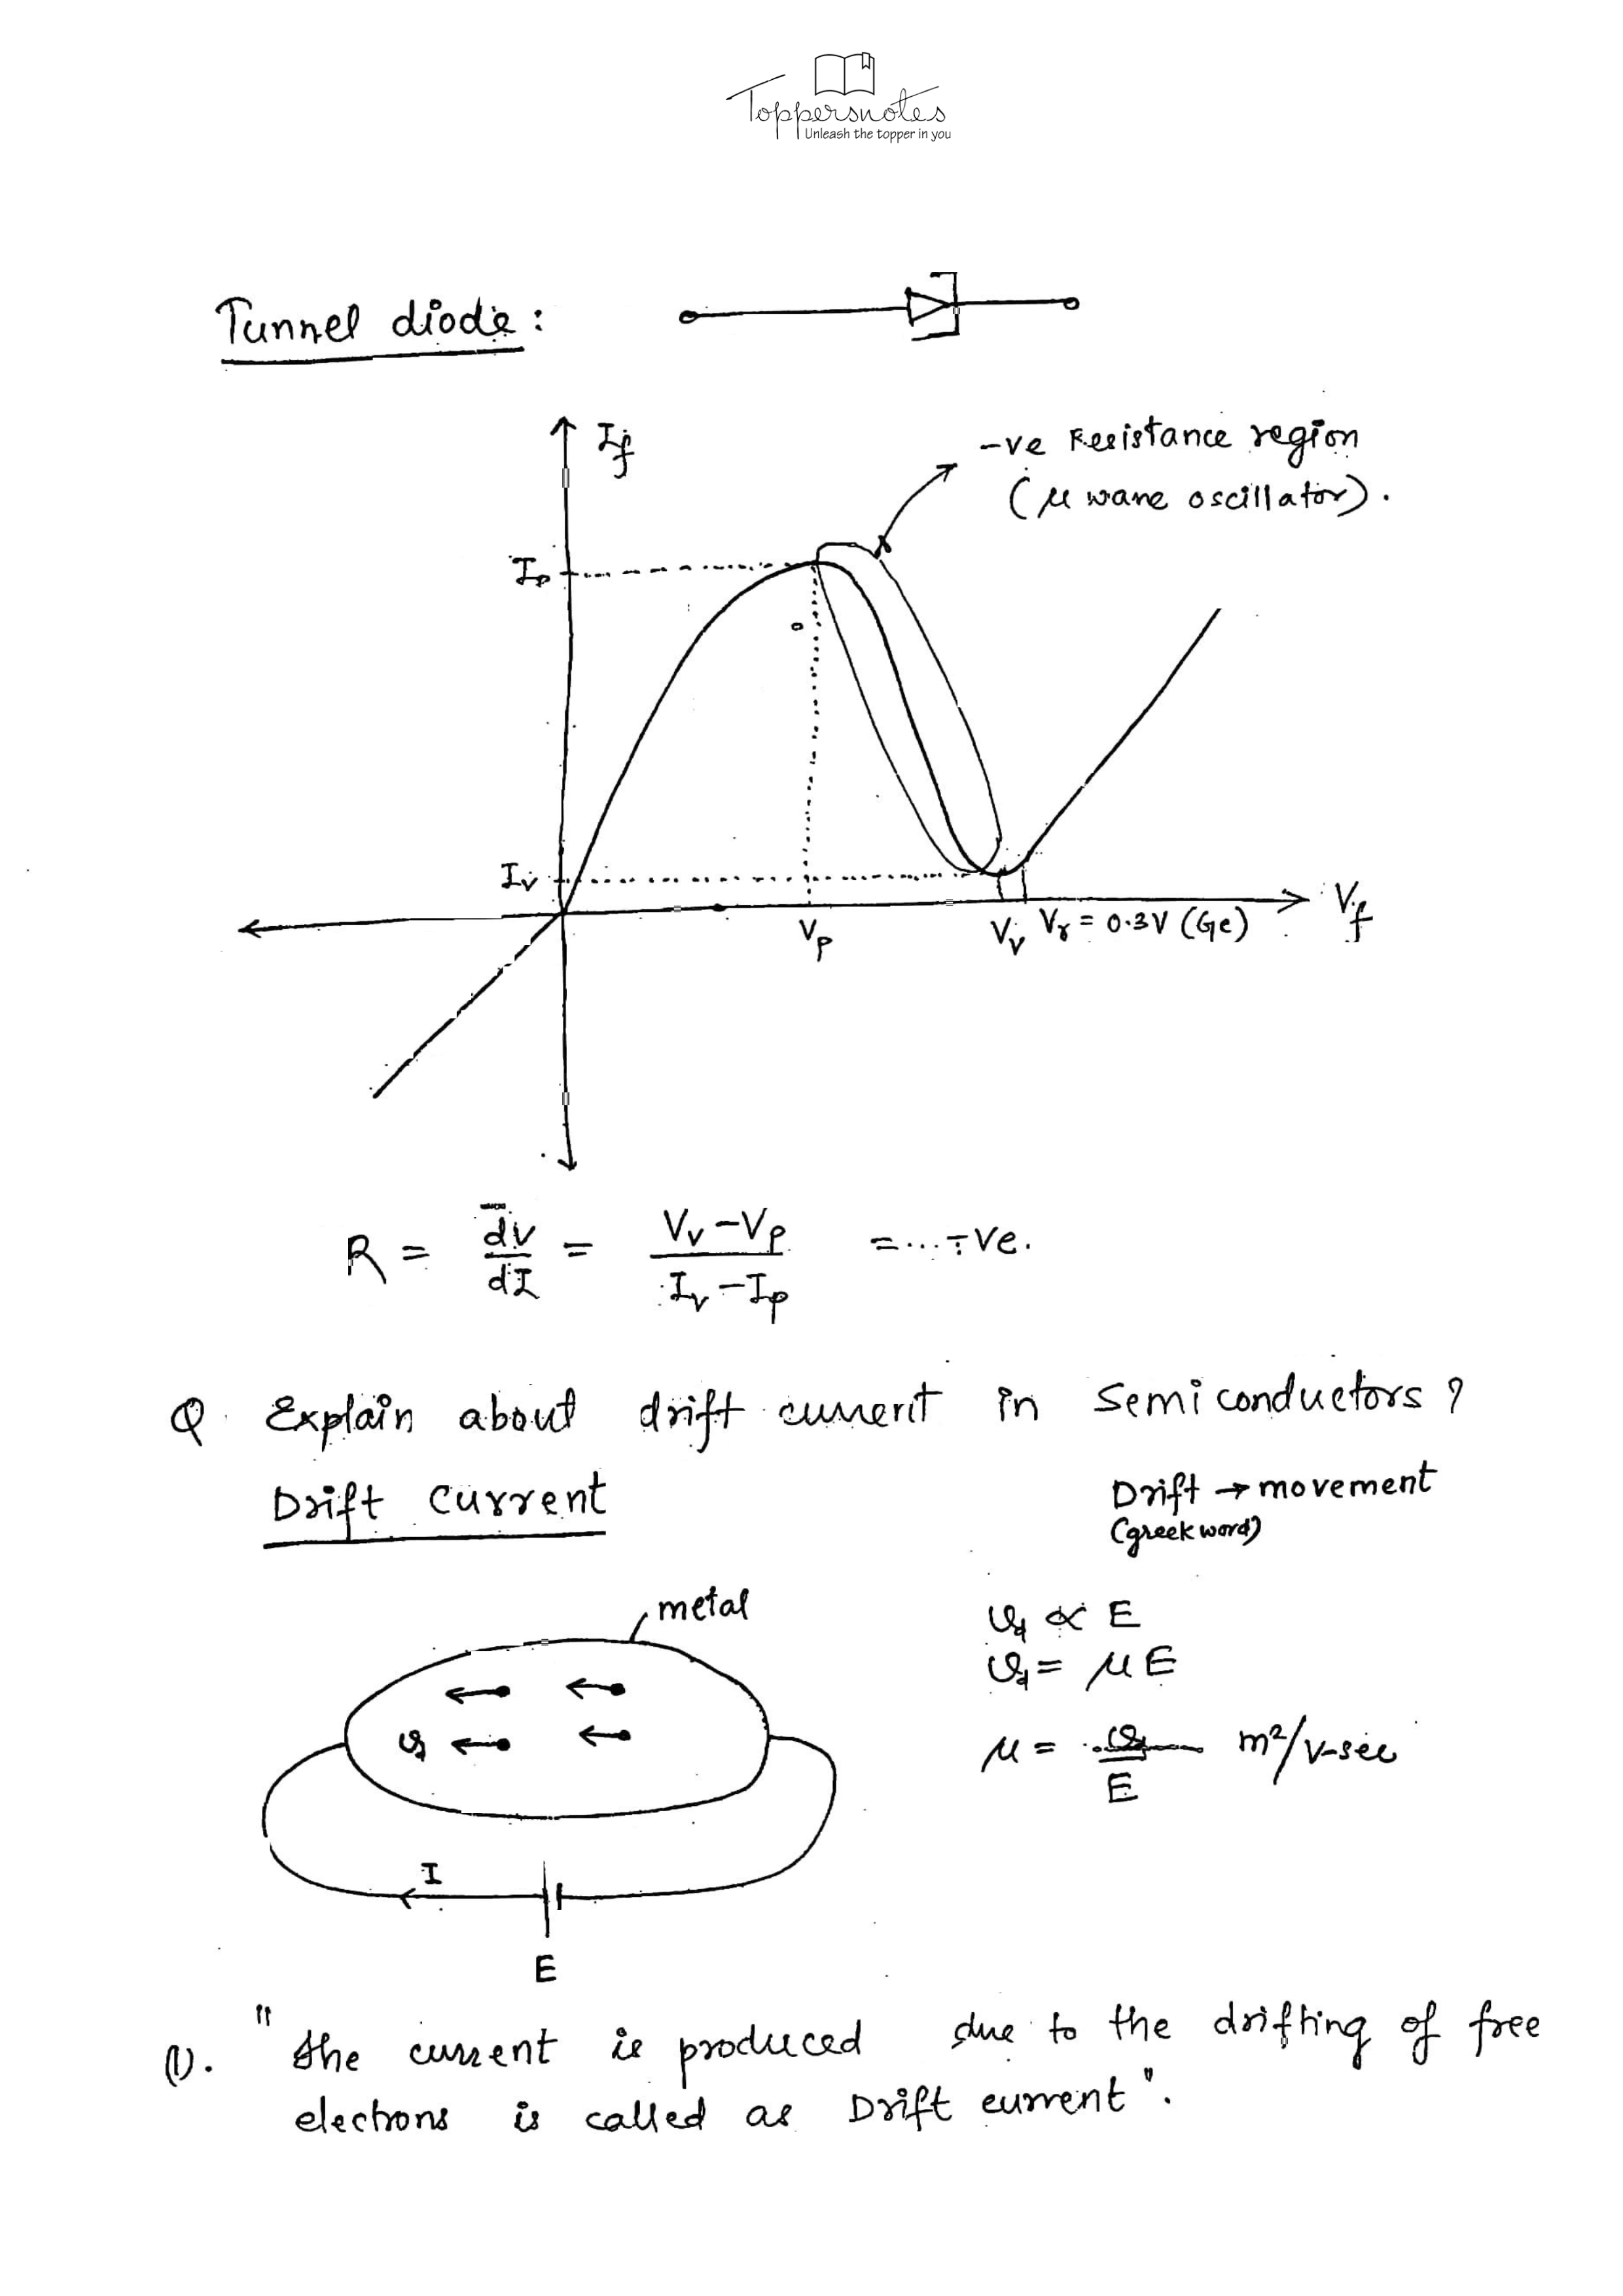 Toppersnotes
Unleash the topper in you
Tunnel diode :
If
-ve Resistance region
(μ wave oscillator).
Ip
Iv
Vp
Vv Vγ = 0.3V (Ge)
Vf
R = dv/dI = Vv - Vp / Iv - Ip = ... -ve.
Q. Explain about drift current in Semiconductors ?
Drift current
Drift → movement
(greek word)
metal
vd ∝ E
vd = μE
vd
μ = vd/E m²/v-sec
I
E
(1). "the current is produced due to the drifting of free
electrons is called as Drift current".